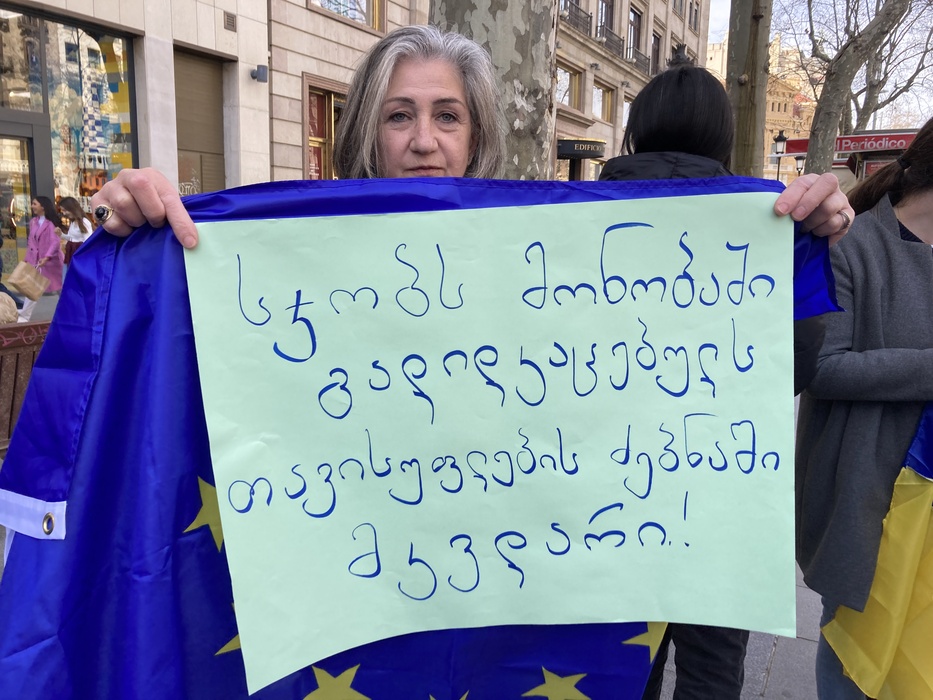 სჯობს მონობაში
გადიდკაცებულს
თავისუფლების ძებნაში
მკვდარი!
EDIFICIO
l Periódico